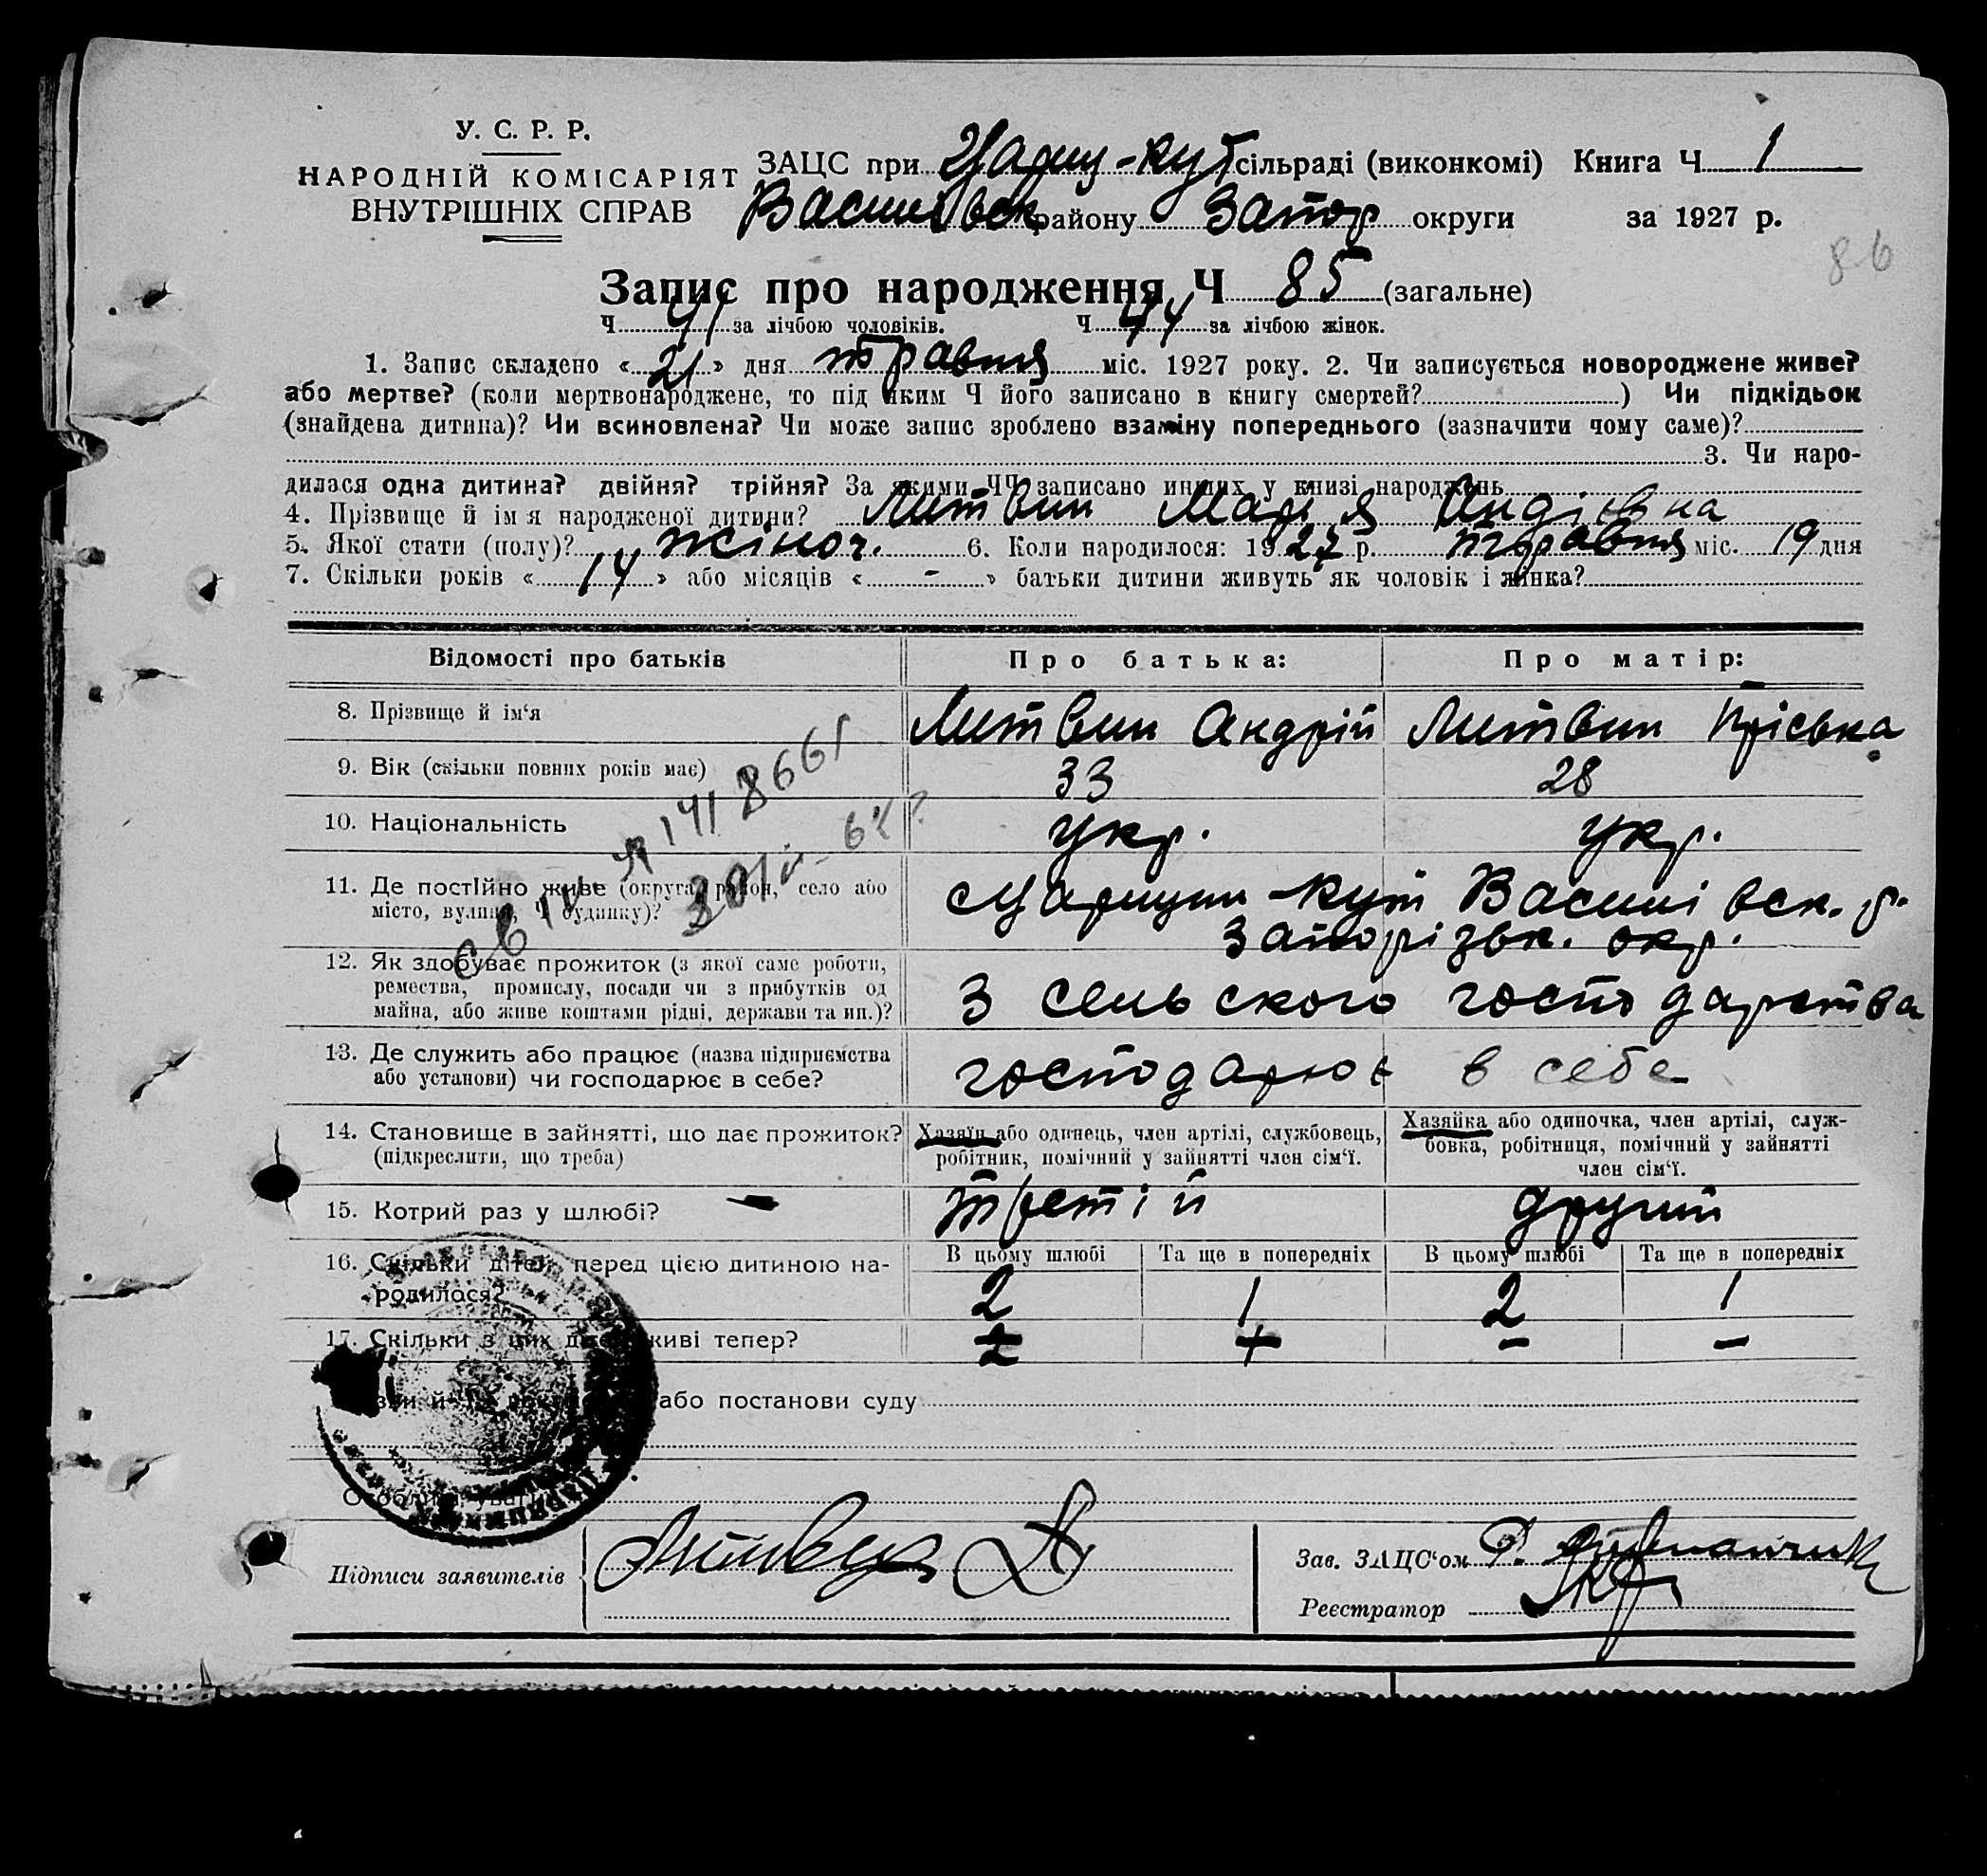 У. С. Р. Р.
НАРОДНІЙ КОМІСАРІЯТ
ВНУТРІШНІХ СПРАВ
ЗАЦС при Цариц-кут сільраді (виконкомі) Книга Ч 1
Василівск району Запор округи за 1927 р.
86
Запис про народження Ч 85 (загальне)
Ч 41 за лічбою чоловіків. Ч 44 за лічбою жінок.
1. Запис складено «21» дня травня міс. 1927 року. 2. Чи записується новороджене живе?
або мертве? (коли мертвонароджене, то під яким Ч його записано в книгу смертей?) Чи підкідьок
(знайдена дитина)? Чи всиновлена? Чи може запис зроблено взаміну попереднього (зазначити чому саме)?
3. Чи наро-
дилася одна дитина? двійня? трійня? За якими ЧЧ записано инших у книзі народжень
4. Прізвище й ім я народженої дитини? Литвин Марія Андіївна
5. Якої стати (полу)? жіноч. 6. Коли народилося: 1927 р. травня міс. 19 дня
7. Скільки років «14» або місяців «-» батьки дитини живуть як чоловік і жінка?
Відомості про батьків Про батька: Про матір:
8. Прізвище й ім‘я Литвин Андрій Литвин Пріська
9. Вік (скільки повних років має) 33 28
10. Національність укр. укр.
11. Де постійно живе (округа, район, село або
місто, вулиця, Ч будинку)? Царицин-кут Василівск. р.
Запорізьк. окр.
12. Як здобуває прожиток (з якої саме роботи,
ремества, промислу, посади чи з прибутків од
майна, або живе коштами рідні, держави та ин.)? З сельского господарства
13. Де служить або працює (назва підприємства
або установи) чи господарює в себе? господарює в себе
14. Становище в зайнятті, що дає прожиток?
(підкреслити, що треба)
Хазяїн або одинець, член артілі, службовець,
робітник, помічний у зайнятті член сім‘ї.
Хазяйка або одиночка, член артілі, служ-
бовка, робітниця, помічний у зайнятті
член сім‘ї.
15. Котрий раз у шлюбі? - третій другий
16. Скільки дітей перед цією дитиною на-
родилося?
В цьому шлюбі Та ще в попередніх В цьому шлюбі Та ще в попередніх
2 1 2 1
17. Скільки з цих дітей живі тепер? - -
або постанови суду
Особливі уваги
Підписи заявителів
Зав. ЗАЦС‘ом
Реєстратор